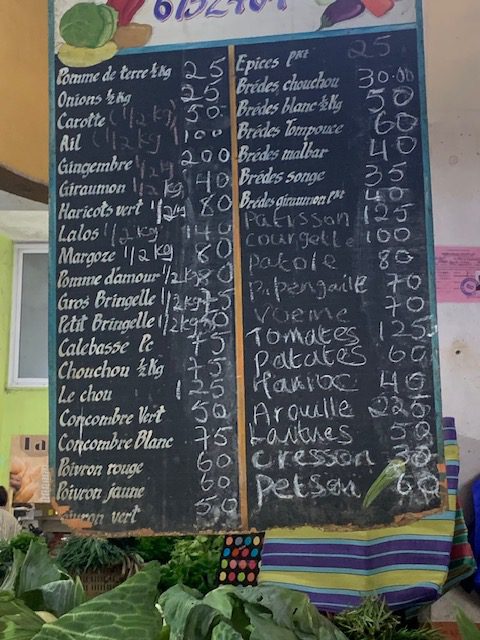 Pomme de terre ½ Kg 25
Onions ½ Kg 25
Carotte (1/2 kg) 50
Ail (1/2 kg) 100
Gingembre 1/2 kg 200
Giraumon 1/2 kg 40
Haricots vert 1/2 kg 80
Lalos 1/2 kg 140
Margoze 1/2 kg 80
Pomme d'amour 1/2 kg 80
Gros Bringelle 1/2 kg 75
Petit Bringelle 1/2 kg 50
Calebasse Pc 75
Chouchou ½ Kg 75
Le chou 125
Concombre Vert 50
Concombre Blanc 75
Poivron rouge 60
Poivron jaune 60
vert 50
Epices pkt 25
Brédes chouchou 30.00
Brédes blanc ½ Kg 50
Brédes Tompouce 60
Brédes malbar 40
Brédes songe 35
Brédes giraumon pkt 40
Patisson 125
Courgette 100
Patole 80
Pipengaille 70
Voeme 70
Tomates 125
Patates 60
Manioc 40
Arouille 225
Laitues 50
Cresson 30
Petsai 60